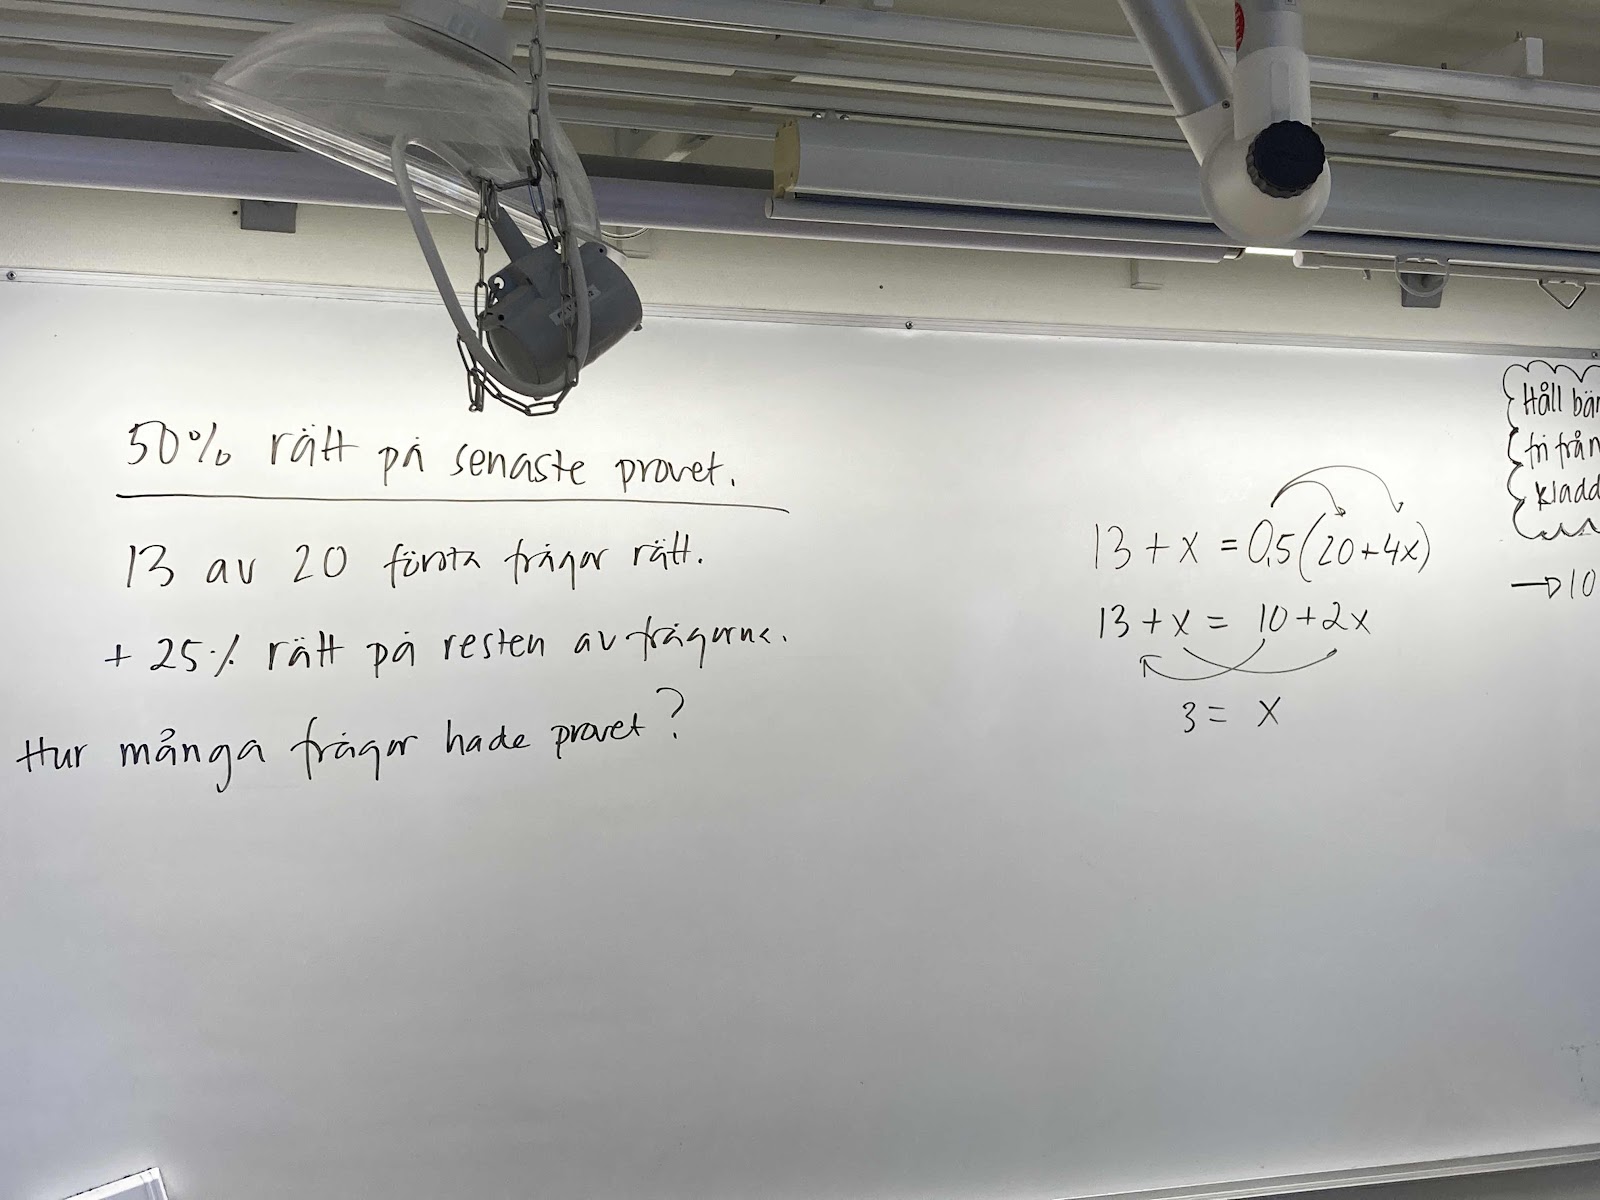 50% rätt på senaste provet.
13 av 20 första frågor rätt.
+ 25% rätt på resten av frågorna.
Hur många frågor hade provet?
13 + x = 0,5(20+4x)
13 + x = 10+2x
3 = x
Håll bän
fri från
kladd
→ 10